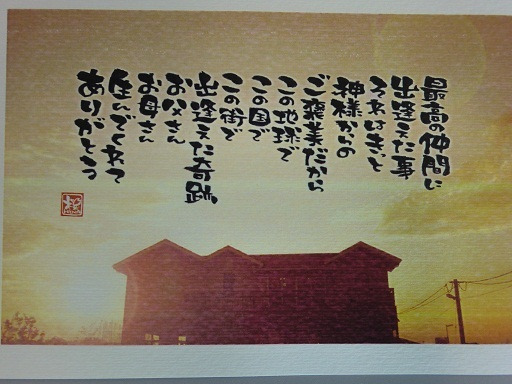 最高の仲間に
出逢えた事
それはきっと
神様からの
ご褒美だから
この地球で
この国で
この街で
出逢えた奇跡
お父さん
お母さん
生んでくれて
ありがとう